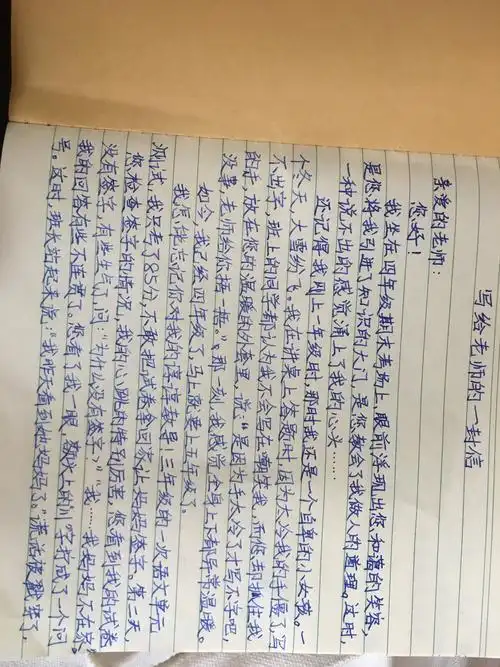 写给老师的一封信
亲爱的老师：
您好！
我坐在四年级期末考场上，眼前浮现出您和蔼的笑容，
是您将我引进了知识的大门，是您教会了我做人的道理。这时，
一种说不出的感觉涌上了我的心头……
还记得我刚上一年级时，那时我还是一个自卑的小女孩。一
个冬天，大雪纷飞。我在讲桌上答题时，因为太冷我的手僵了，写
不出字，班上的同学都认为我不会写在嘲笑我，而您却抓住我
的手，放在您的温暖的外套里，说：“是因为手太冷了才写不字吧，
没事，老师给你捂一捂。”那一刻，我感觉全身上下都异常温暖。
如今，我已经四年级了，马上就要上五年级了
我怎能忘记你对我的谆谆教导！三年级的一次语文单元
测试，我只考了85分，不敢把试卷拿回家让妈妈签字。第二天，
您检查签字的情况，我的心跳的特别厉害，您看到我的试卷
没有签字，有些生气了问：“为什么没有签字？”“我……我妈妈不在家。”
我的回答有些不连贯了。您看了我一眼，额头上的川字拧成了一个问
号。这时，班长站起来说：“我昨天看到他妈妈了。”谎话被戳穿了，